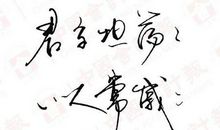 君子坦荡〻
小人常戚〻